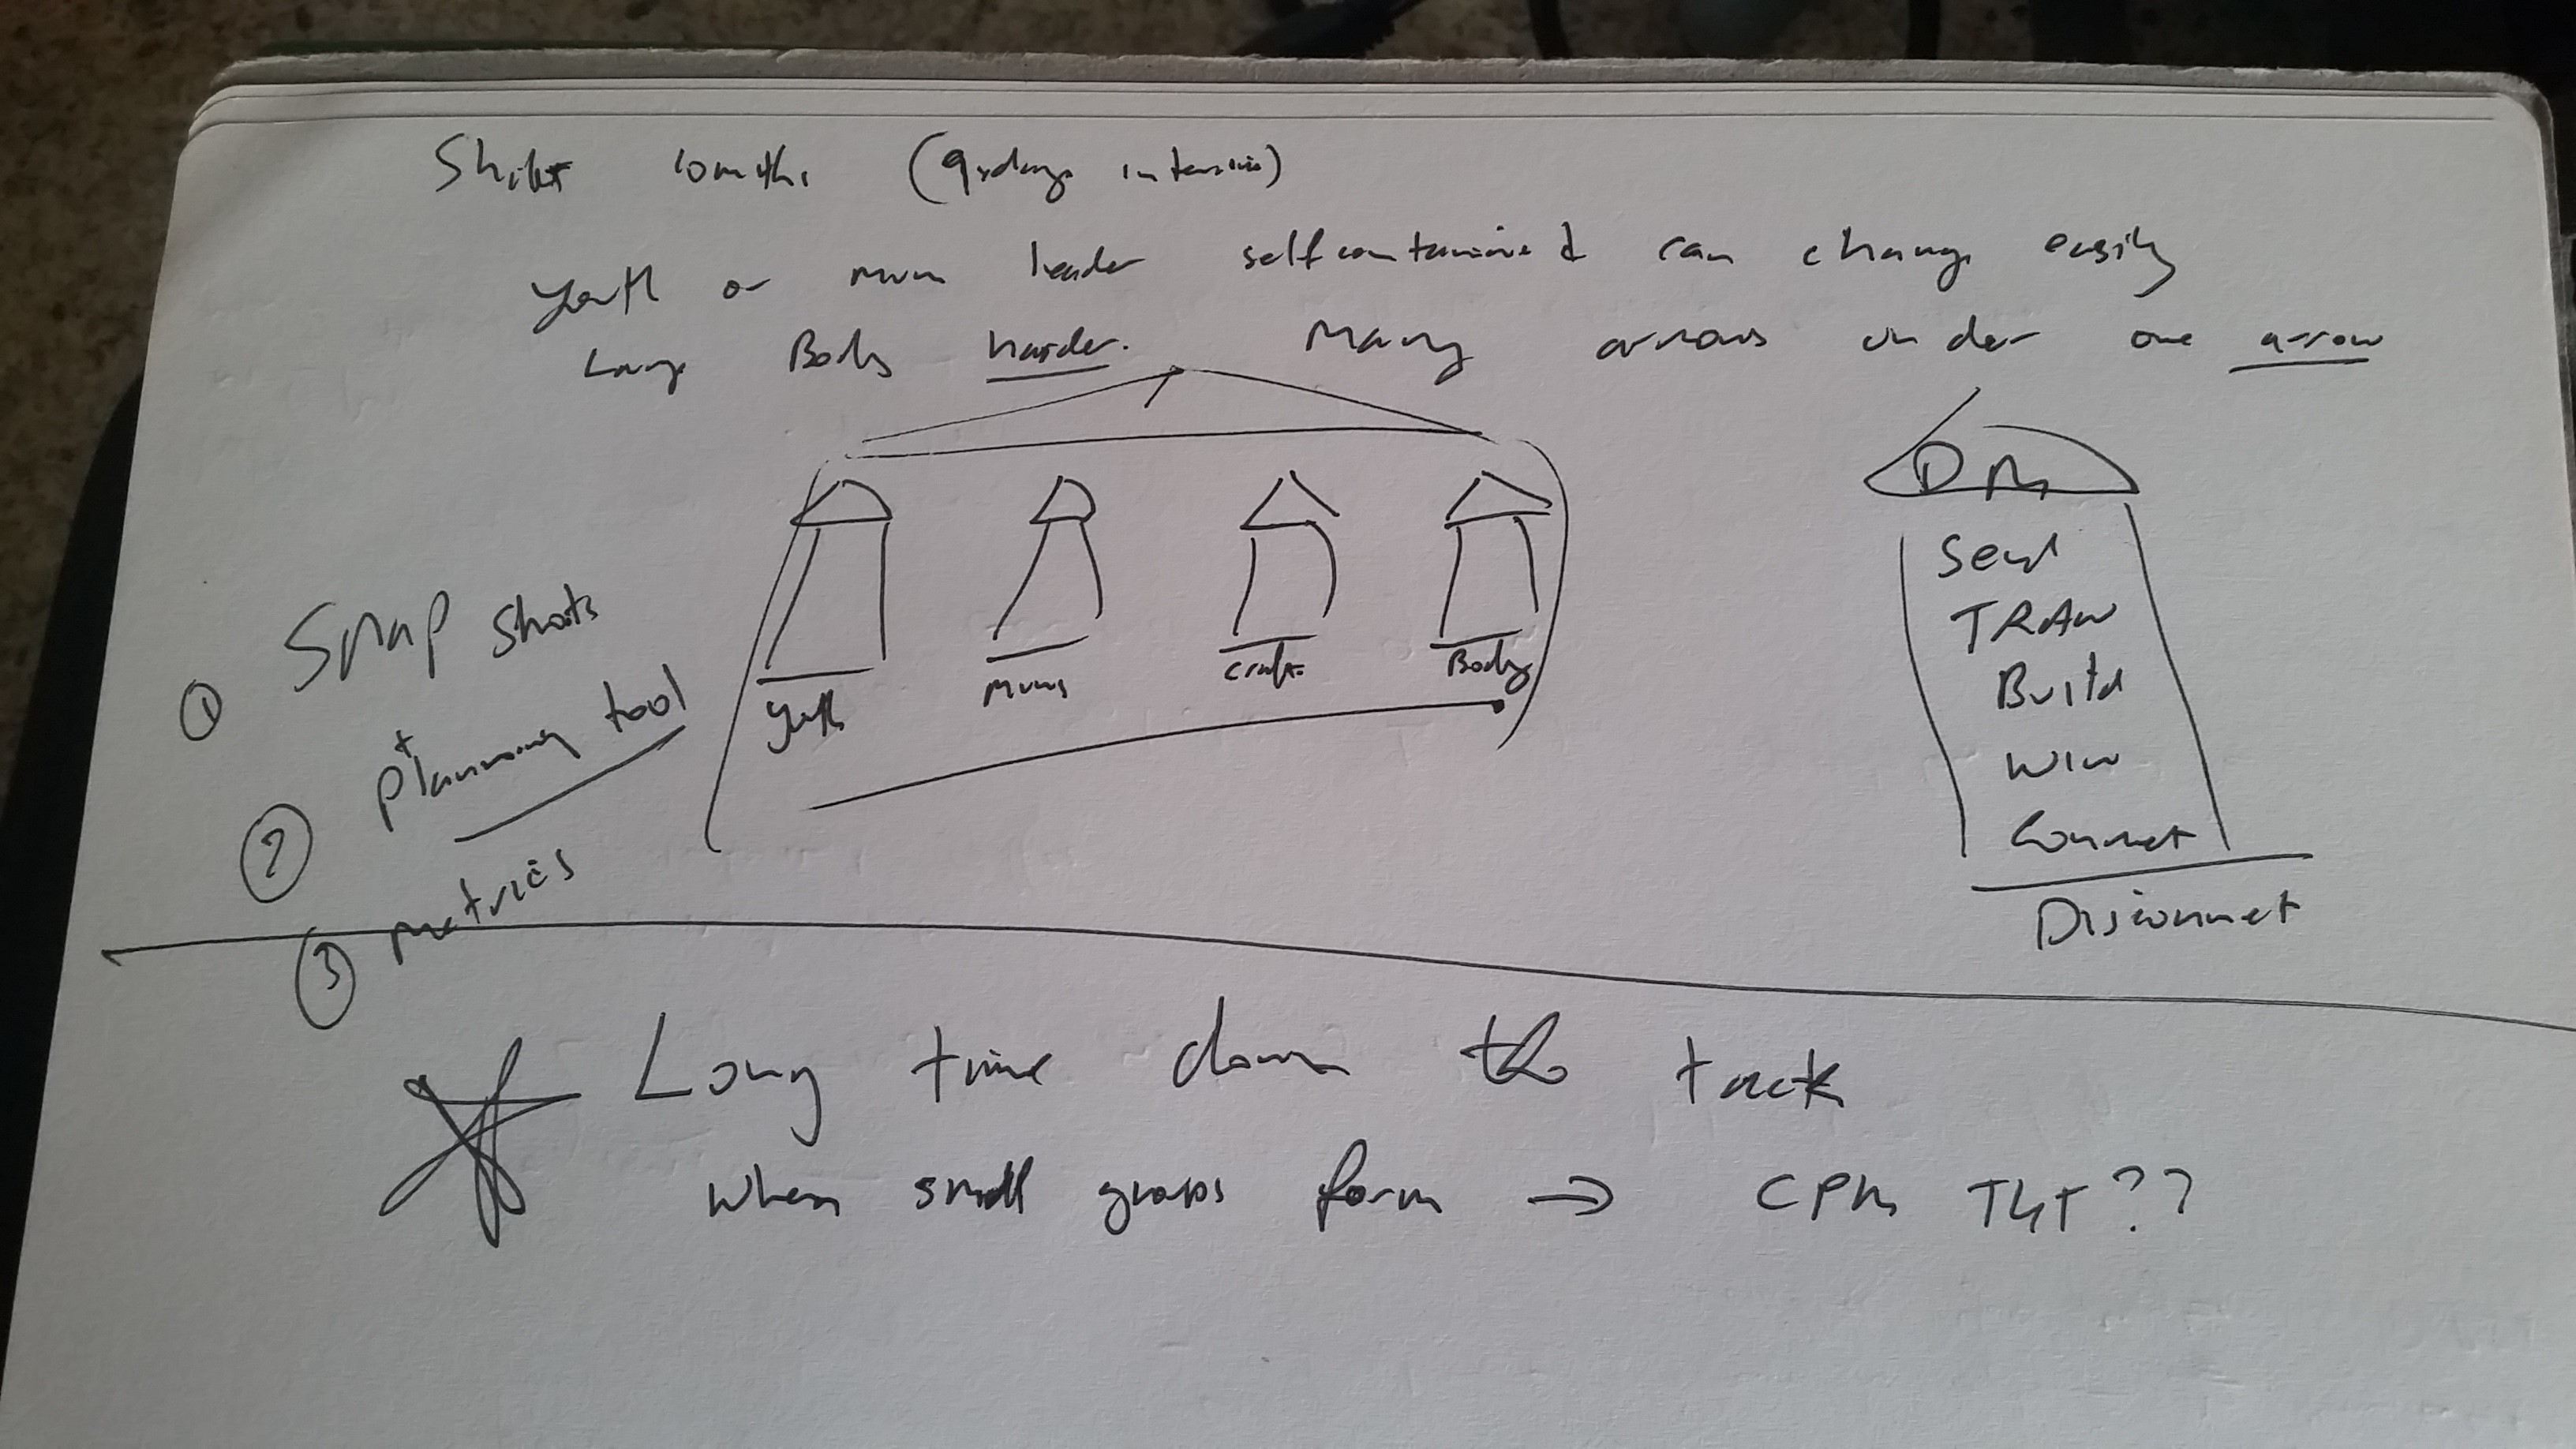 Youth or mum leader selfcontained can change easily
Large Body harder. Many arrows under one arrow
Youth
Mums
craft
Body
DM
Send
TRAIN
Build
WIN
Connect
Disconnect
① Snap shots
+
② planning tool
③ metrics
Long time down the track
when small groups form → CPM T4T??